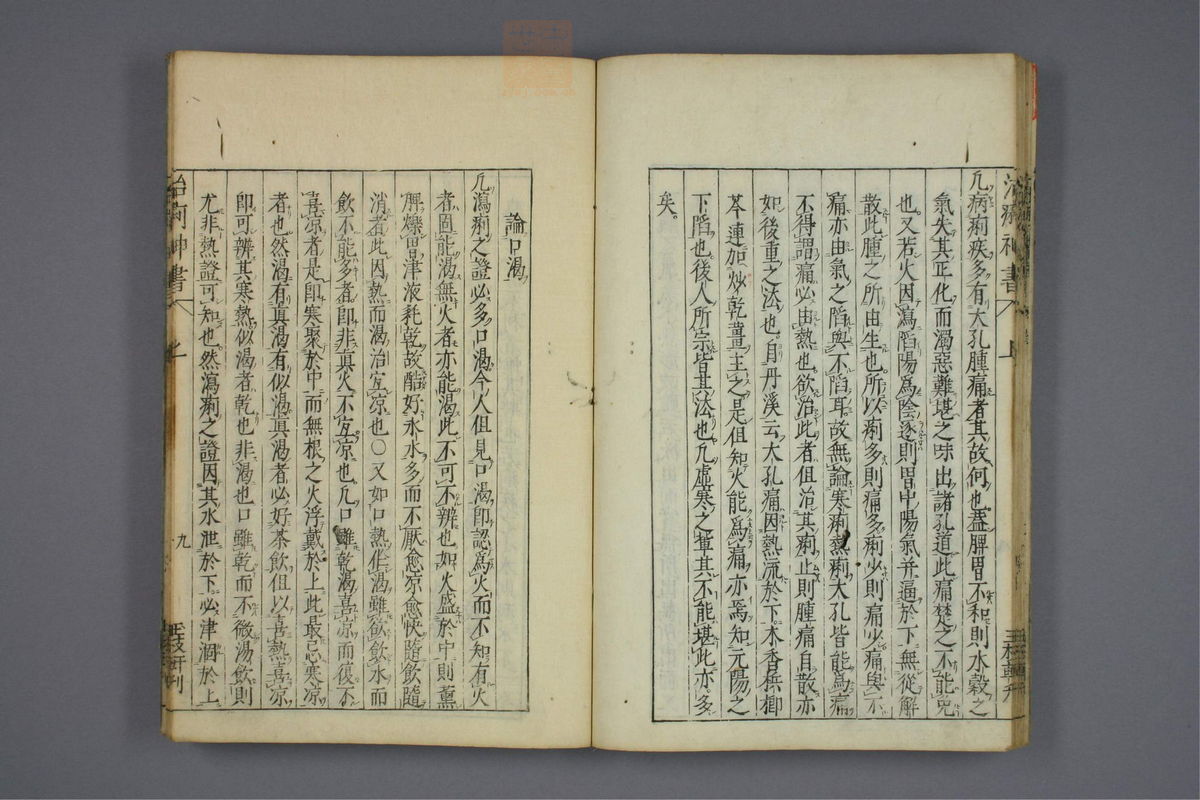 凡病痢疾多有大孔腫痛者其故何也蓋脾胃不和則水穀之
氣失其正化而濁惡難堪之味出諸孔道此痛楚之不能免
也又若火因瀉陷陽為陰逐則胃中陽氣并逼於下無從解
散此腫之所由生也所以痢多則痛多痢少則痛少痛與不
痛亦由氣之陷與不陷耳故無論寒痢熱痢大孔皆能為痛
不得謂痛必由熱也欲治此者但治其痢痢止則腫痛自散亦
如後重之法也自丹溪云大孔痛因熱流於下木香檳榔
芩連加炒乾薑主之是但知火能為痛亦焉知元陽之
下陷也後人所宗皆其法也凡虛寒之輩其不能堪此亦多
矣
治痢神書
上
論口渴
凡瀉痢之證必多口渴今人但見口渴即認為火而不知有火
者固能渴無火者亦能渴此不可不辨也如火盛於中則薰
脾爍胃津液耗乾故酷好氷水多而不厭愈凉愈快隨飲隨
消者此因熱而渴治宜凉也○又如口熱作渴雖欲飲水而
飲不能多者即非真火不宜凉也凡口雖乾渴喜凉而復不
喜凉者是即寒聚於中而無根之火浮戴於上此最忌寒凉
者也然渴有真渴有似渴真渴者必好茶飲但以喜熱喜凉
即可辨其寒熱似渴者乾也非渴也口雖乾而不微湯飲則
尤非熱證可知也然瀉痢之證因其水泄於下必津涸於上
治痢神書
上
九